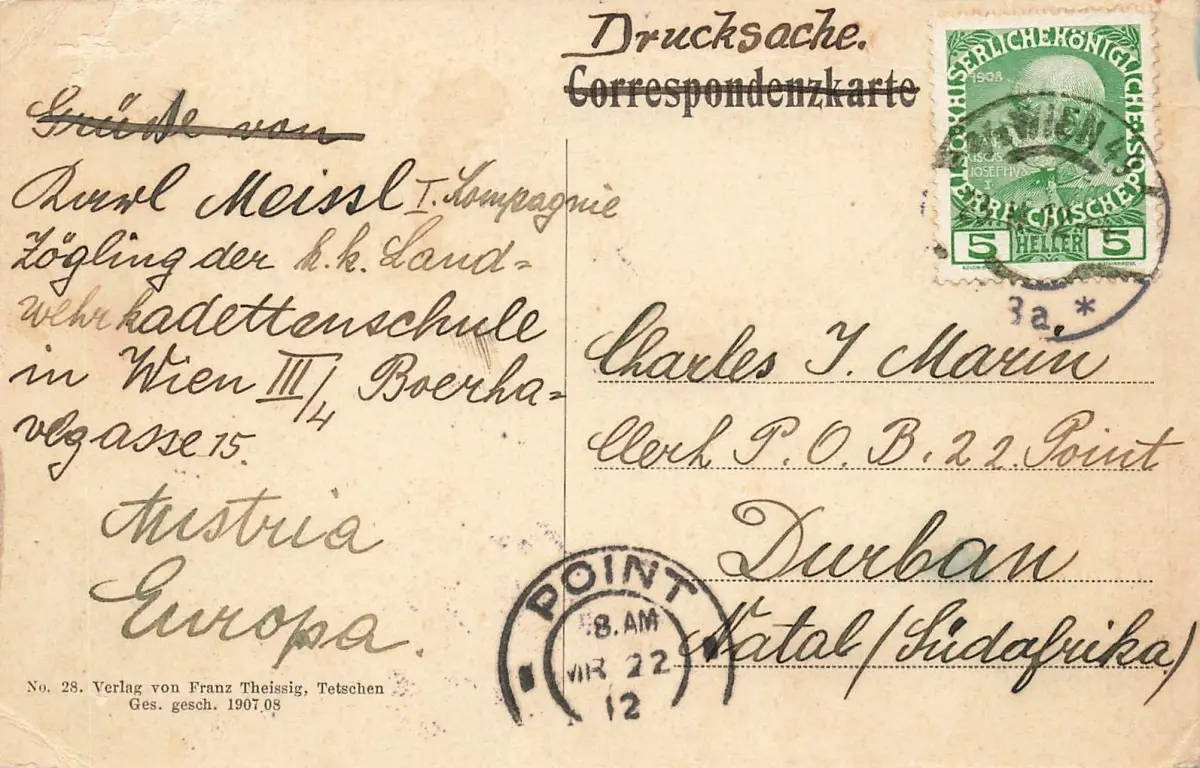 Drucksache.
Correspondenzkarte
Grüße von
Karl Meissl I. Kompagnie
Zögling der k. k. Land=
wehrkadettenschule
in Wien III/4 Boerha=
vegasse 15.
Austria
Europa.
No. 28. Verlag von Franz Theissig, Tetschen
Ges. gesch. 1907/08
KAISERLICHE KÖNIGLICHE ÖSTERREICHISCHE POST
1908
JOSEPHVS
I
5 HELLER 5
WIEN
3a *
Charles J. Marin
Clerk P. O. B. 22. Point
Durban
Natal / (Südafrika)
POINT
8. AM
MR 22
12